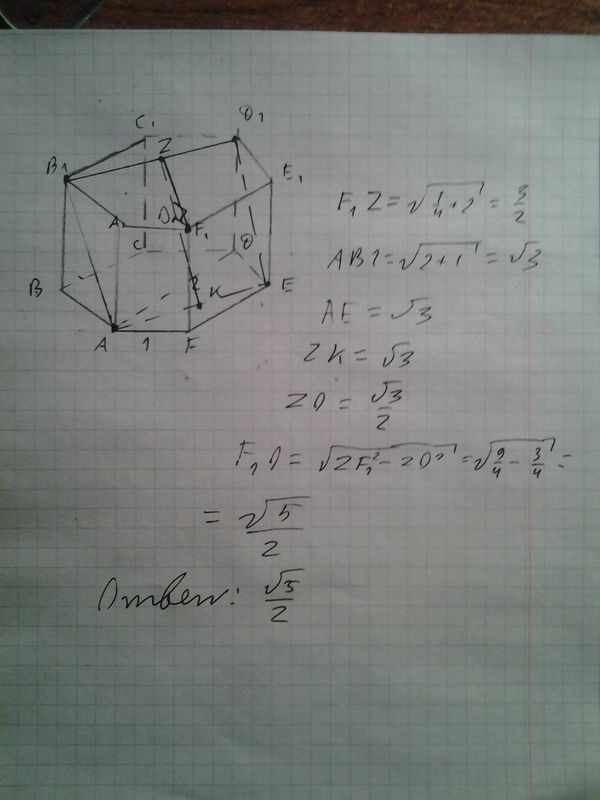 C₁
D₁
Z
B₁
E₁
A₁
O
F₁
C
D
B
K
E
A
1
F
F₁Z = √(1/4 + 2) = 3/2
AB1 = √(2+1) = √3
AE = √3
ZK = √3
ZO = √3/2
F₁O = √(ZF₁² - ZO²) = √(9/4 - 3/4) =
= √5/2
Ответ: √5/2